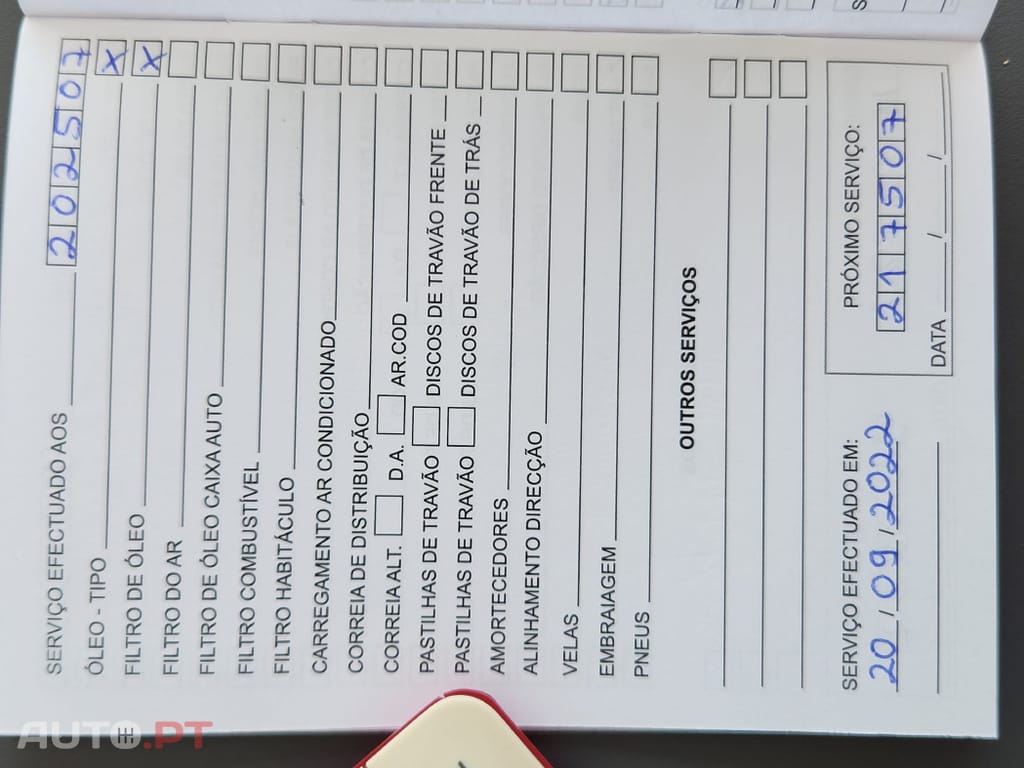 SERVIÇO EFECTUADO AOS 202507
ÓLEO - TIPO X
FILTRO DE ÓLEO X
FILTRO DO AR
FILTRO DE ÓLEO CAIXA AUTO
FILTRO COMBUSTÍVEL
FILTRO HABITÁCULO
CARREGAMENTO AR CONDICIONADO
CORREIA DE DISTRIBUIÇÃO
CORREIA ALT. D.A. AR.COD
PASTILHAS DE TRAVÃO DISCOS DE TRAVÃO FRENTE
PASTILHAS DE TRAVÃO DISCOS DE TRAVÃO DE TRÁS
AMORTECEDORES
ALINHAMENTO DIRECÇÃO
VELAS
EMBRAIAGEM
PNEUS
OUTROS SERVIÇOS
SERVIÇO EFECTUADO EM:
20/09/2022
PRÓXIMO SERVIÇO:
217507
DATA / /
AUTO.PT